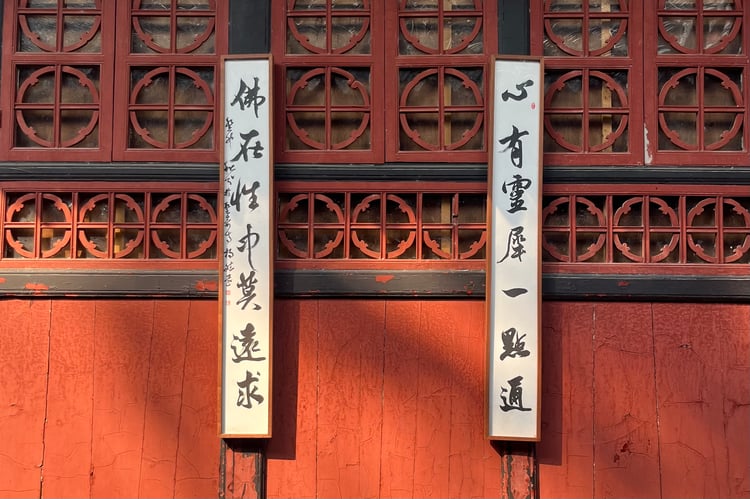 心有靈犀一點通
佛在性中莫遠求